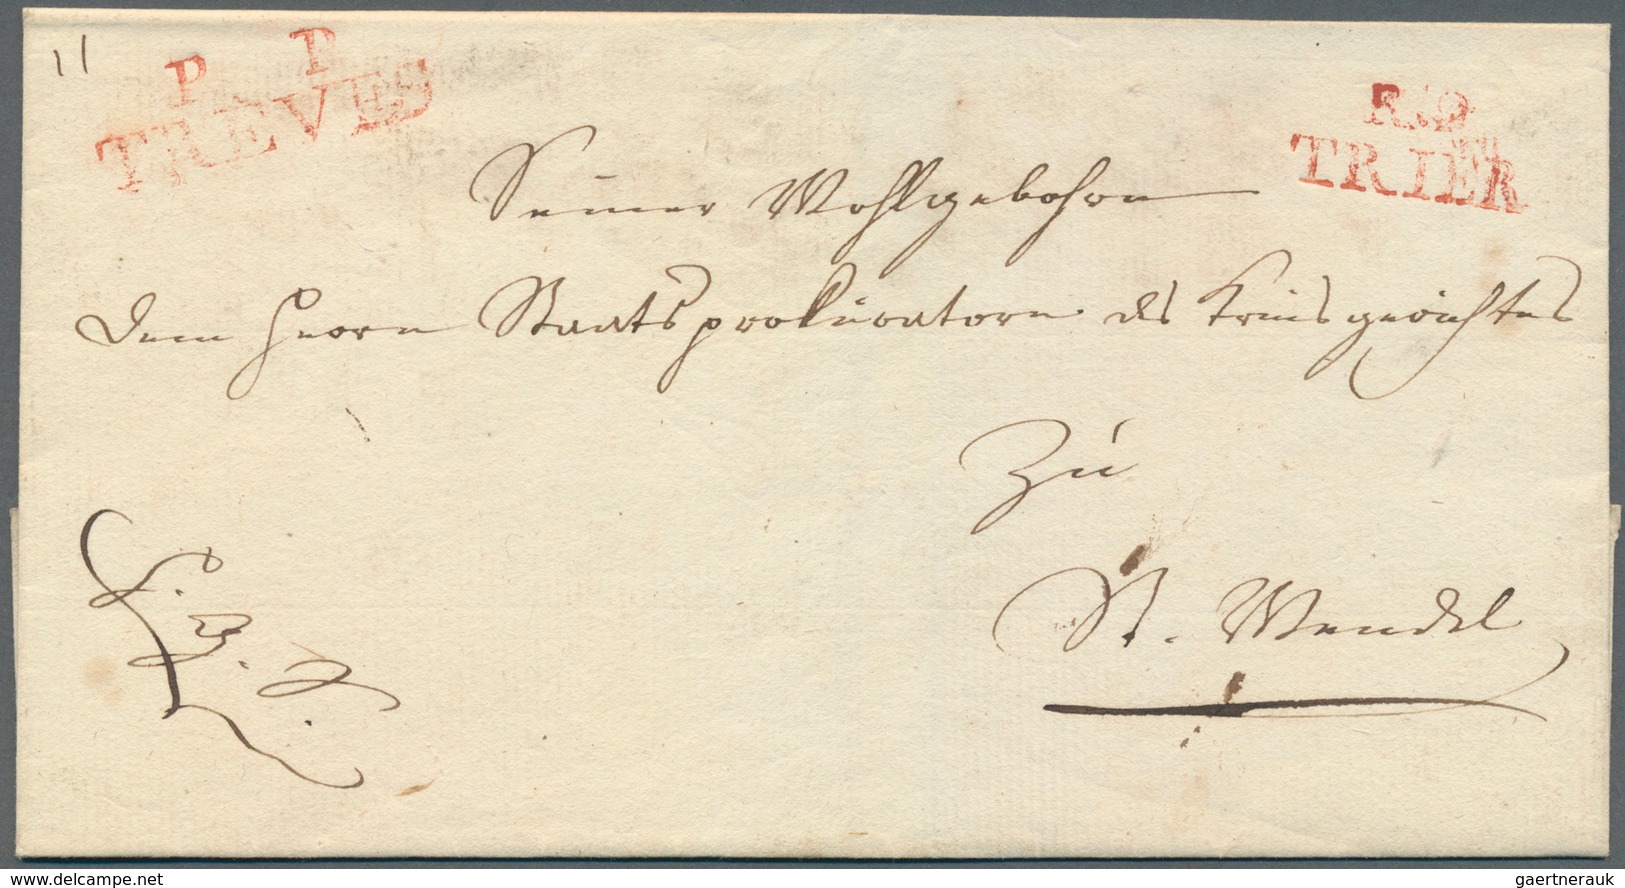 11
P P
TREVES
R.
TRIER
Seiner Wohlgebohren
dem Herrn Staatsprokurators des Kreisgerichtes
Zu
St. Wendel
www.delcampe.net
gaertnerauk